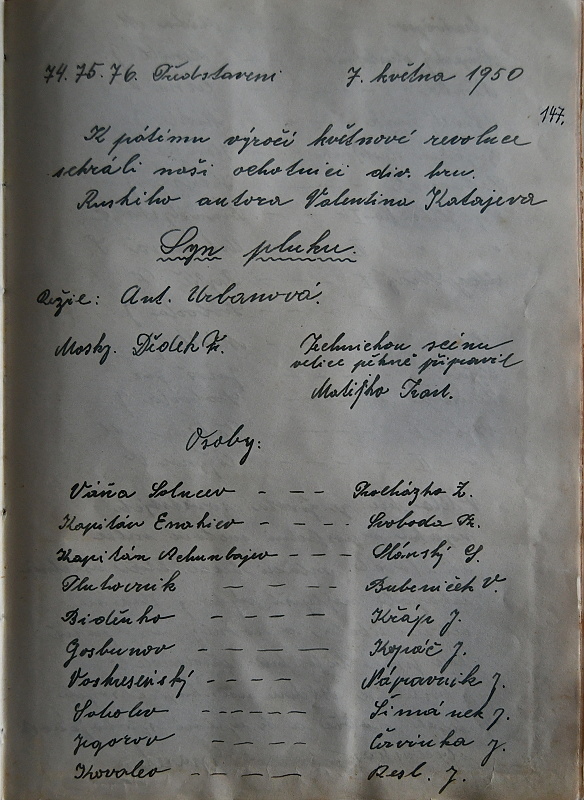 74. 75. 76. Představení 7. května 1950
147.
K pátému výročí květnové revoluce
sehráli naši ochotníci div. hru.
Ruského autora Valentina Katajeva
Syn pluku.
Režie: Ant. Urbanová.
Mosky. Dědek Fr.
Technickou scénu
velice pěkně připravil
Matějko Karl.
Osoby:
Váňa Solncev - - - Procházka Z.
Kapitán Enakiev - - - - Svoboda Fr.
Kapitán Achunbajev - - - Slánský G.
Plukovník - - - - Bubeníček V.
Biděnko - - - - Křáp J.
Gorbunov - - - - Kopáč J.
Voskresenský - - - - Nápravník J.
Sokolov - - - - - - Šimánek J.
Jegorov - - - - Červinka J.
Kovalev - - - - - Resl. J.